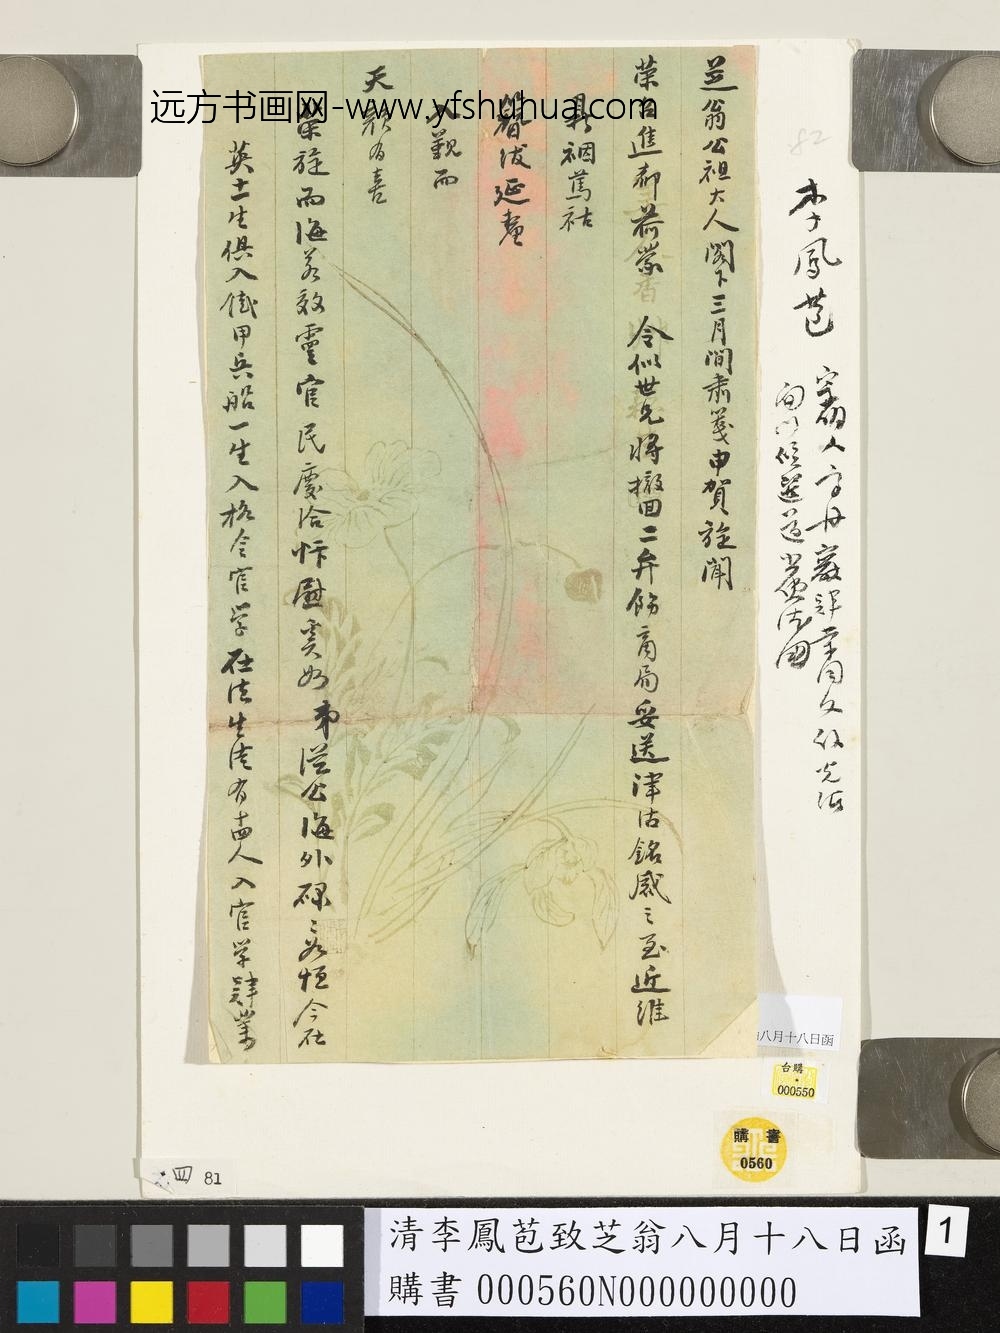 远方书画网-www.yfshuhua.com
82
李鳳苞
芝翁公祖大人閣下三月間肅箋申賀旋聞
榮召進都荷蒙 令似世兄將撤回二弁飭商局妥送津沽銘感之至近維
鼎祻蔫祜
馨洽延釐
入覲而
天顏有喜
榮旋而海若效靈官民慶洽忭慰奚如弟從公海外碌碌如恒今在
英士生俱入鐵甲兵船一生入格令官學在法生徒有十四人入官學肄業
八月十八日函
台購
000550
購書
0560
四 81
清李鳳苞致芝翁八月十八日函
購書 000560N000000000
1